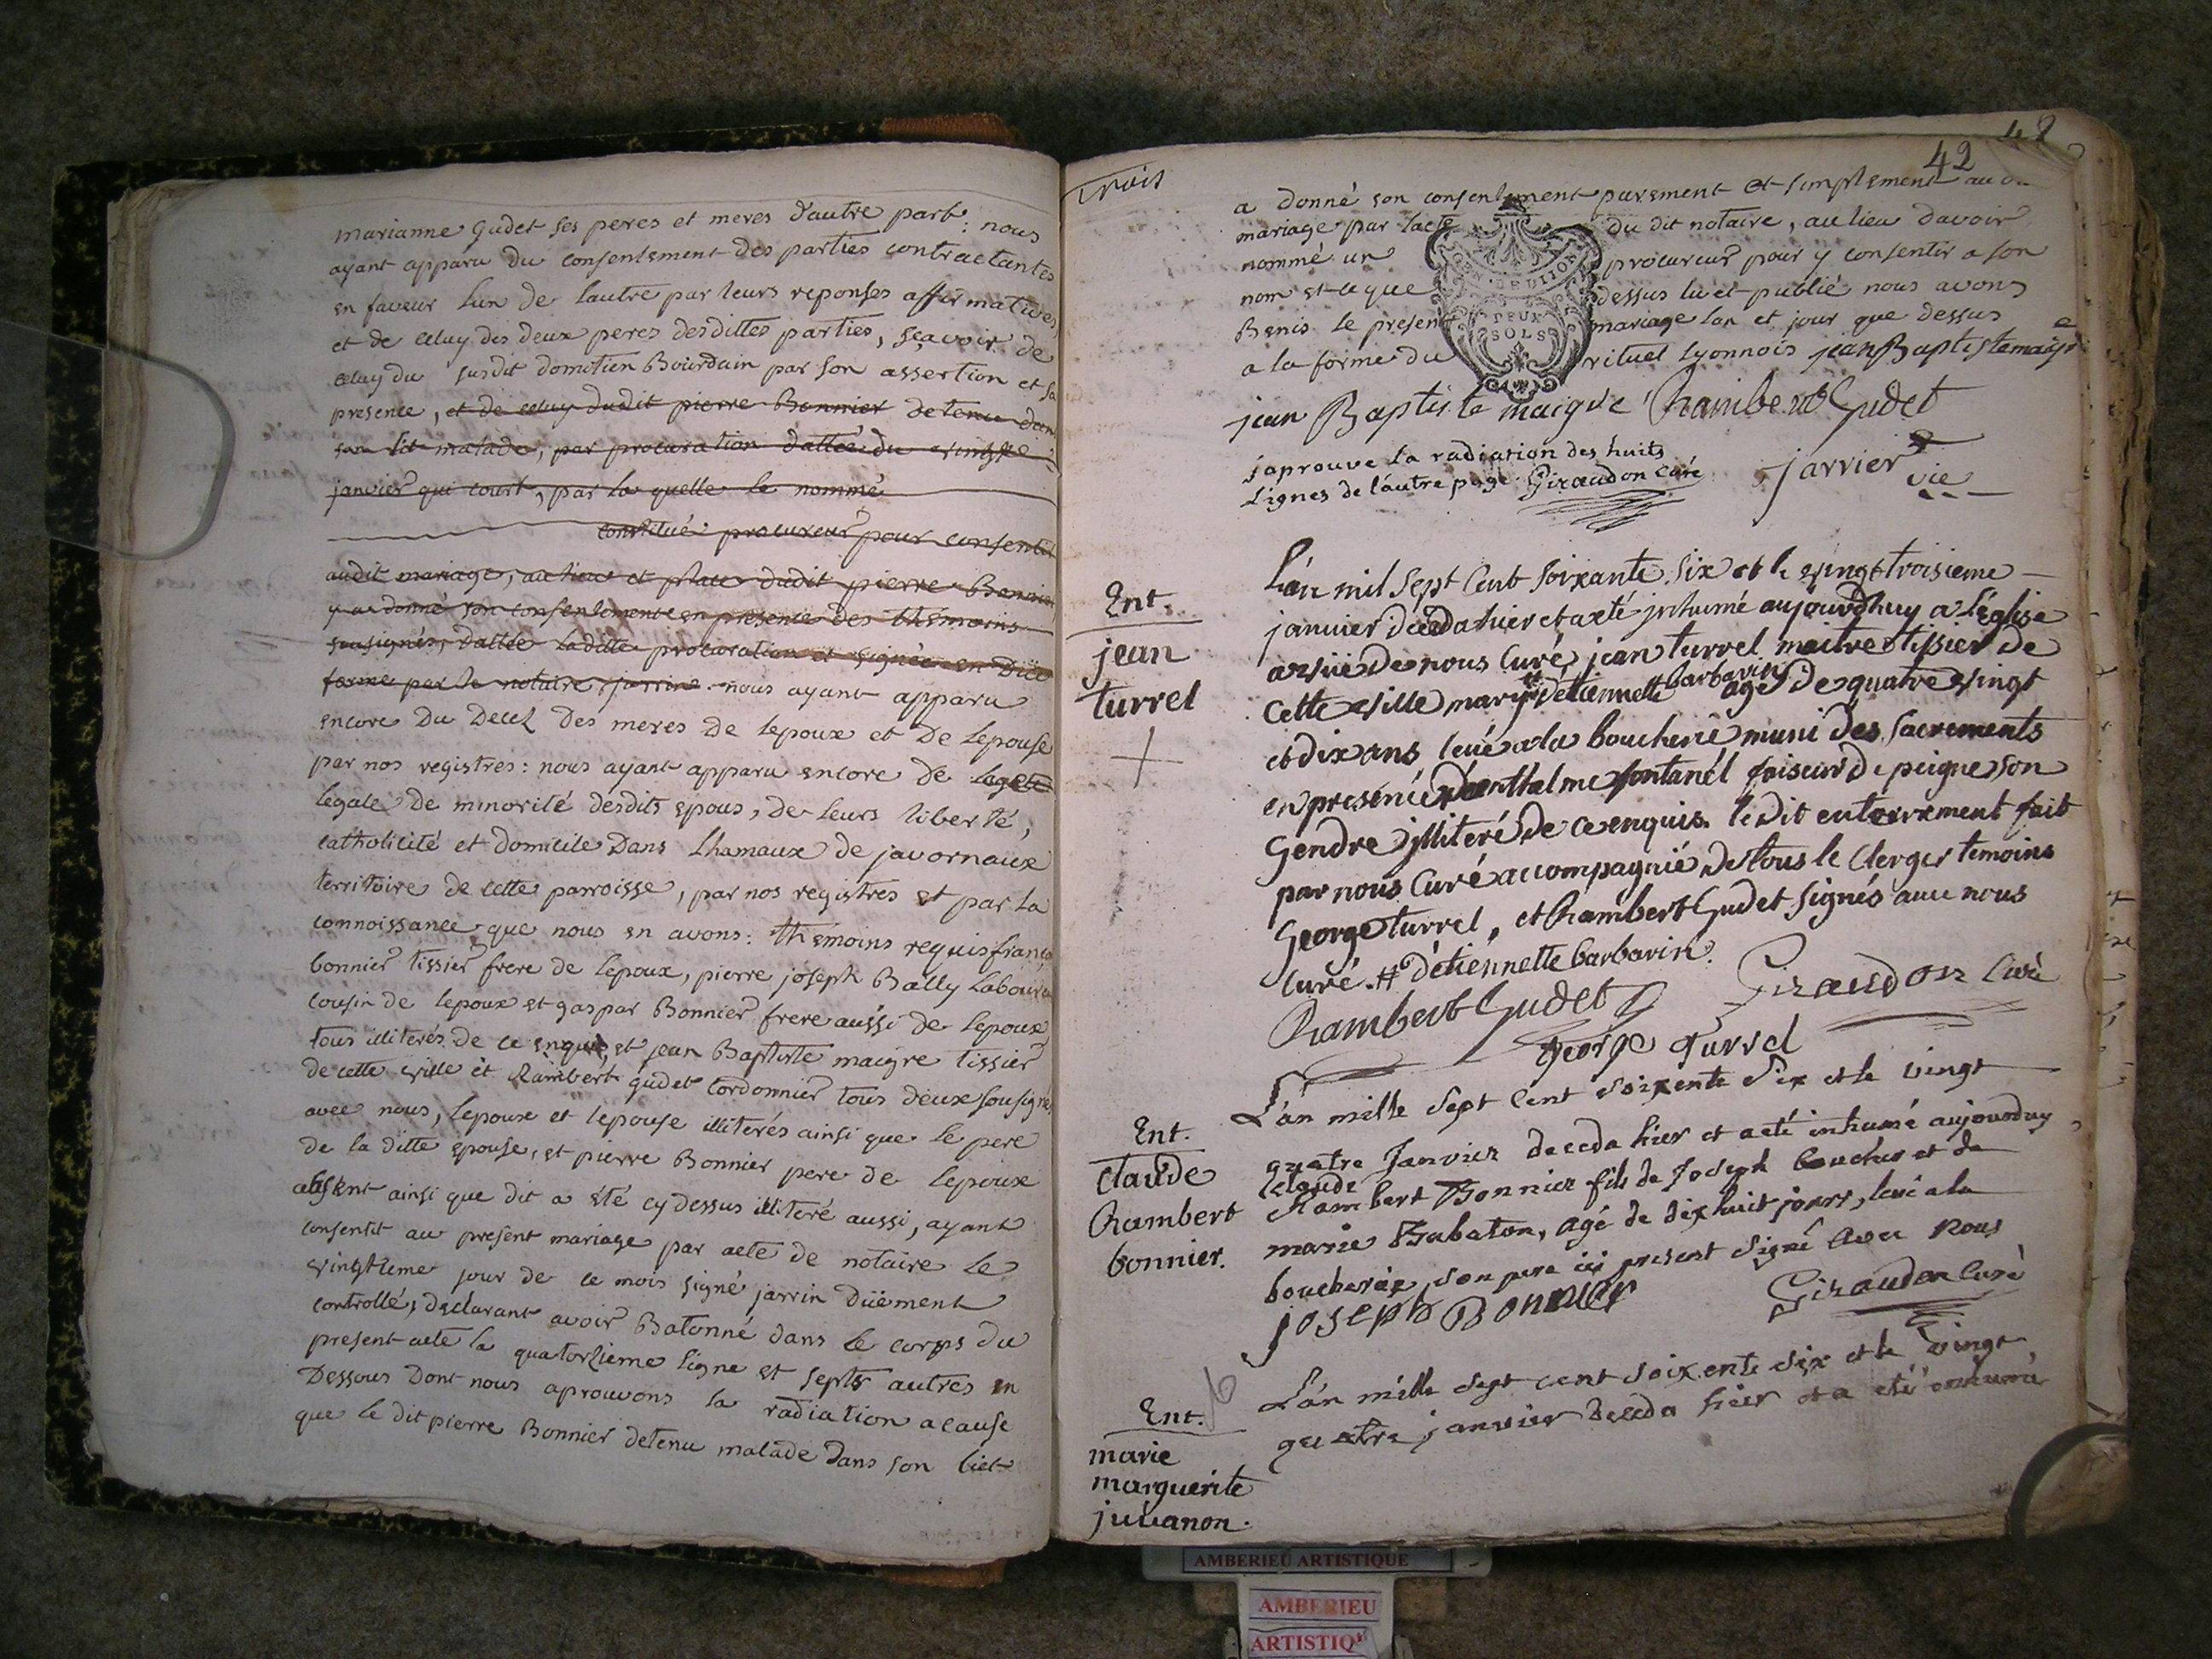 marianne gudet ses peres et meres d'autre part: nous
ayant apparu du consentement des parties contractantes
en faveur lun de lautre par leurs reponses affirmatives
et de celuy des deux peres desdittes parties, sçavoir de
celuy du susdit domitien Bourdain par son assertion et sa
presence, et de celuy dudit pierre Bonnier detenu dans
son lit malade, par procuration dattée du vingtie
janvier qui court, par la quelle le nommé
constitué procureur pour consentir
audit mariage, au lieu et place dudit pierre Bonnier
y a donné son consentement en presence des thémoins
sousignés, dattée laditte procuration et signée en düe
forme par le notaire jarrin. nous ayant apparu
encore du decez des meres de lepoux et de lepouse
par nos registres: nous ayant apparu encore de lagete
legale de minorité desdits epous, de leurs liberté,
catholicité et domicile Dans Lhamaux de javornaux
territoire de cette parroisse, par nos registres et par la
connoissance que nous en avons: thémoins requis franco
bonnier tissier frere de lepoux, pierre joseph Bally Laboureur
cousin de lepoux et gaspar Bonnier frere aussi de lepoux
tous illiterés de ce enquis, et jean Baptiste maigre tissier
de cette ville et Rambert gudet Cordonnier tous deux sousignés
avec nous, lepoux et lepouse illiterés ainsi que le pere
de la ditte epouse, et pierre Bonnier pere de lepoux
absent ainsi que dit a été cy dessus illiteré aussi, ayant
consentit au present mariage par acte de notaire le
vingtieme jour de ce mois signé jarrin düement
controllé, declarant avoir Batonné dans le corps du
present acte la quatorzieme ligne et septs autres en
Dessous Dont nous aprouvons la radiation acause
que le dit pierre Bonnier detenu malade Dans son liet
trois
42
42
a donné son consentement purement et simplement au dit
mariage par lacte du dit notaire, aulieu davoir
nommé un procureur pour y consentir a son
nom et ce que dessus lu et publié nous avons
Benis le present mariage lan et jour que dessus
a la forme du rituel Lyonnois jean Baptiste maigre
GEN DE LION
DEUX
SOLS
jean Baptiste maigre Rambert Gudet
japrouve la radiation des huits
Lignes de lautre page Giraudon Curé jarrier
vic
Ent.
jean
turrel
L'an mil sept Cent soixante six et le vingt troisieme
janvier deceda hier et a eté inhumé aujourdhuy a l'église
assüé de nous Curé jean turrel maitre tissier de
cette ville mary # detiennette barbarin agé de quatre vingt
et dix ans levé a la boucherie muni des sacrements
en presence danthelme fontanel faiseur de peigne son
Gendre illiteré de ce enquis. le dit enterrement fait
par nous Curé accompagnié de tous le Clerger temoins
George turrel, et Rambert Gudet signés avec nous
Curé. # d'étiennette barbarin.
Rambert Gudet Giraudon Curé
George Turrel
Ent.
claude
Rambert
bonnier.
L'an mille sept Cent soixente Six et le vingt
quatre Janvier deceda hier et a eté inhumé aujourduy
Claude
Rambert Bonnier fils de Joseph boucher et de
marie Babaton, agé de dix huit jours, levé a la
boucherie, son pere ici present signé avec nous
joseph Bonnier Giraudon Curé
Ent.
marie
marguerite
juvanon.
L'an mille sept cent soixente six et le vingt
quatre janvier deceda hier et a eté inhumé
AMBERIEU ARTISTIQUE
AMBERIEU
ARTISTIQ